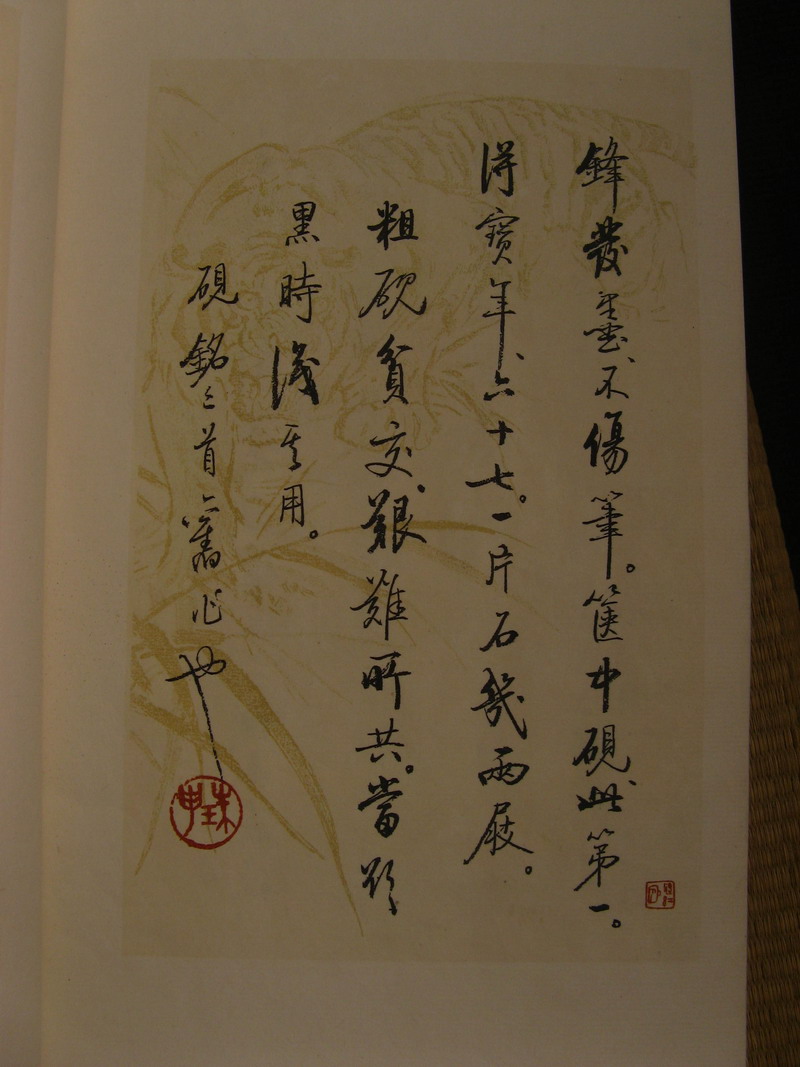 鋒發墨、不傷筆。篋中硯此第一。
得寶年、六十七。一片石幾兩屐。
粗硯貧交、艱難所共。當欲
黑時識其用。
硯銘首舊作也
珠申